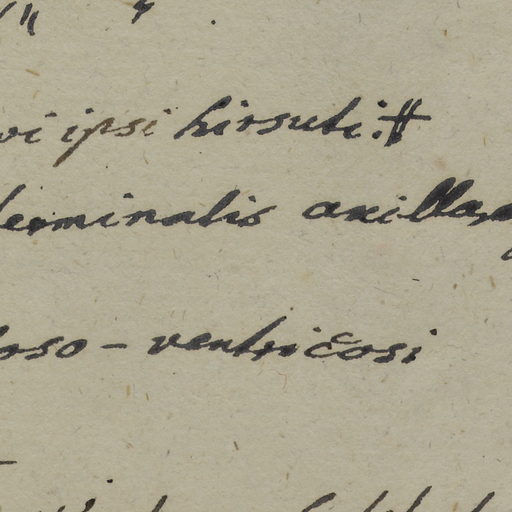 vi ipsi hirsuti:
terminalis axilla
oso - ventricosi